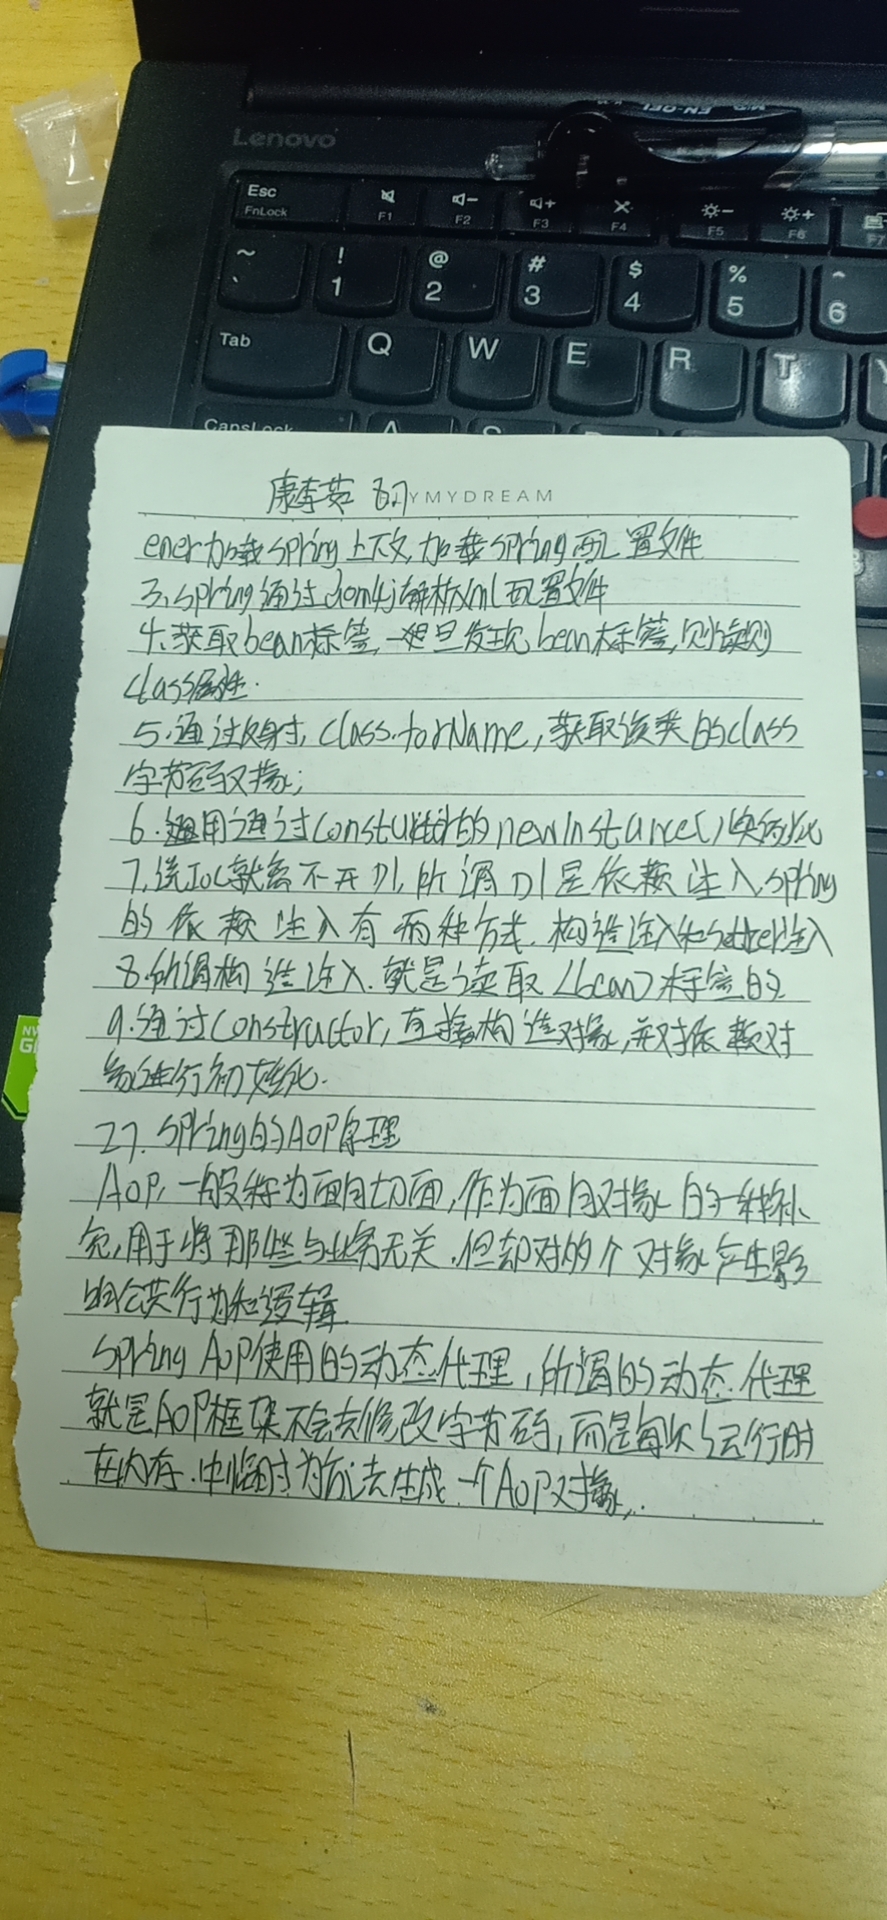 Lenovo
Esc
FnLock
F1
F2
F3
F4
F5
F6
F7
~
` ! 1 @ 2 # 3 $ 4 % 5 ^ 6
Tab Q W E R T Y
CapsLock A S
康李茹 8.7 MYDREAM
ener加载spring上下文,加载spring配置文件
3.spring通过dom4j解析xml配置文件
4.获取bean标签,一旦发现bean标签,则读取
class属性.
5.通过反射,Class.forName,获取该类的class
字节码对象;
6.通过 的newInstance()实例化
7.说IOC就离不开DI,所谓DI是依赖注入,spring
的依赖注入有两种方式.构造注入和setter注入
8.所谓构造注入.就是读取<bean>标签的
9.通过Constructor,直接构造对象,并对依赖对
象进行初始化.
27.spring的AOP原理
AOP,一般称为面向切面,作为面向对象的一种补
充,用于将那些与业务无关.但却对的个对象产生影
响公共行为和逻辑.
spring AOP使用的动态代理,所谓的动态代理
就是AOP框架不会去修改字节码,而是每次运行时
在内存.中临时为方法生成一个AOP对象,.